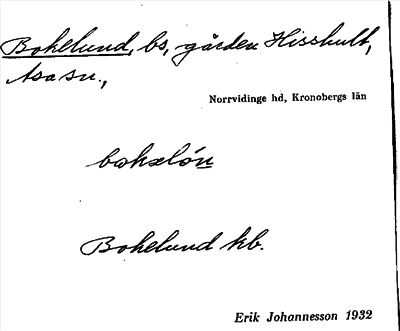 Bokelund, bs, gården Hisshult,
Asa sn.,
Norrvidinge hd, Kronobergs län
Bokelund kb.
Erik Johannesson 1932